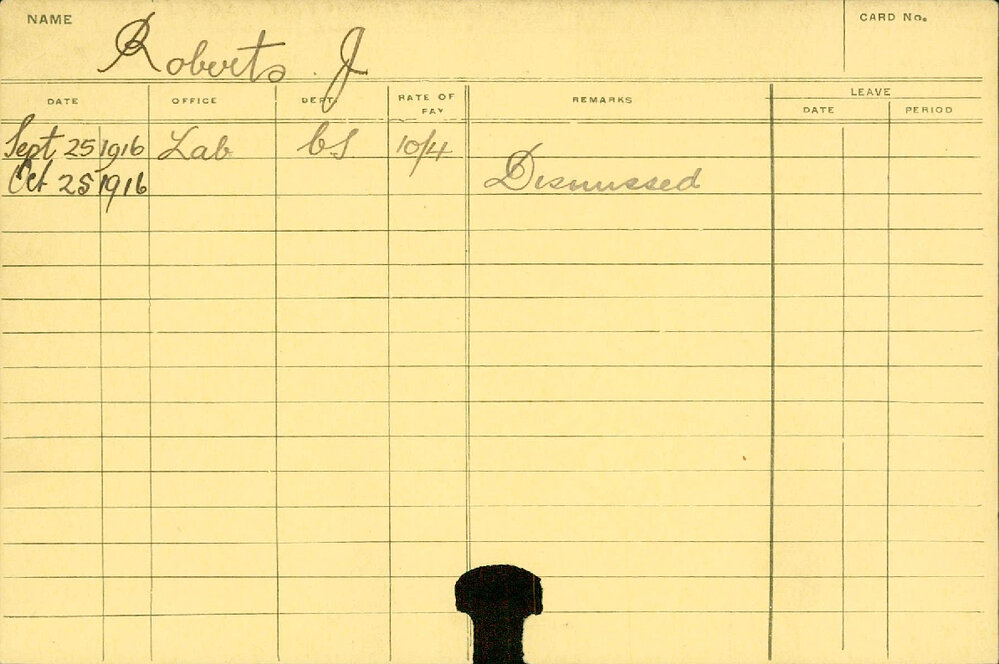 NAME Roberts J CARD No.
DATE OFFICE DEPT. RATE OF PAY REMARKS LEAVE
DATE PERIOD
Sept 25 1916 Lab CS 10/4
Oct 25 1916 Dismissed